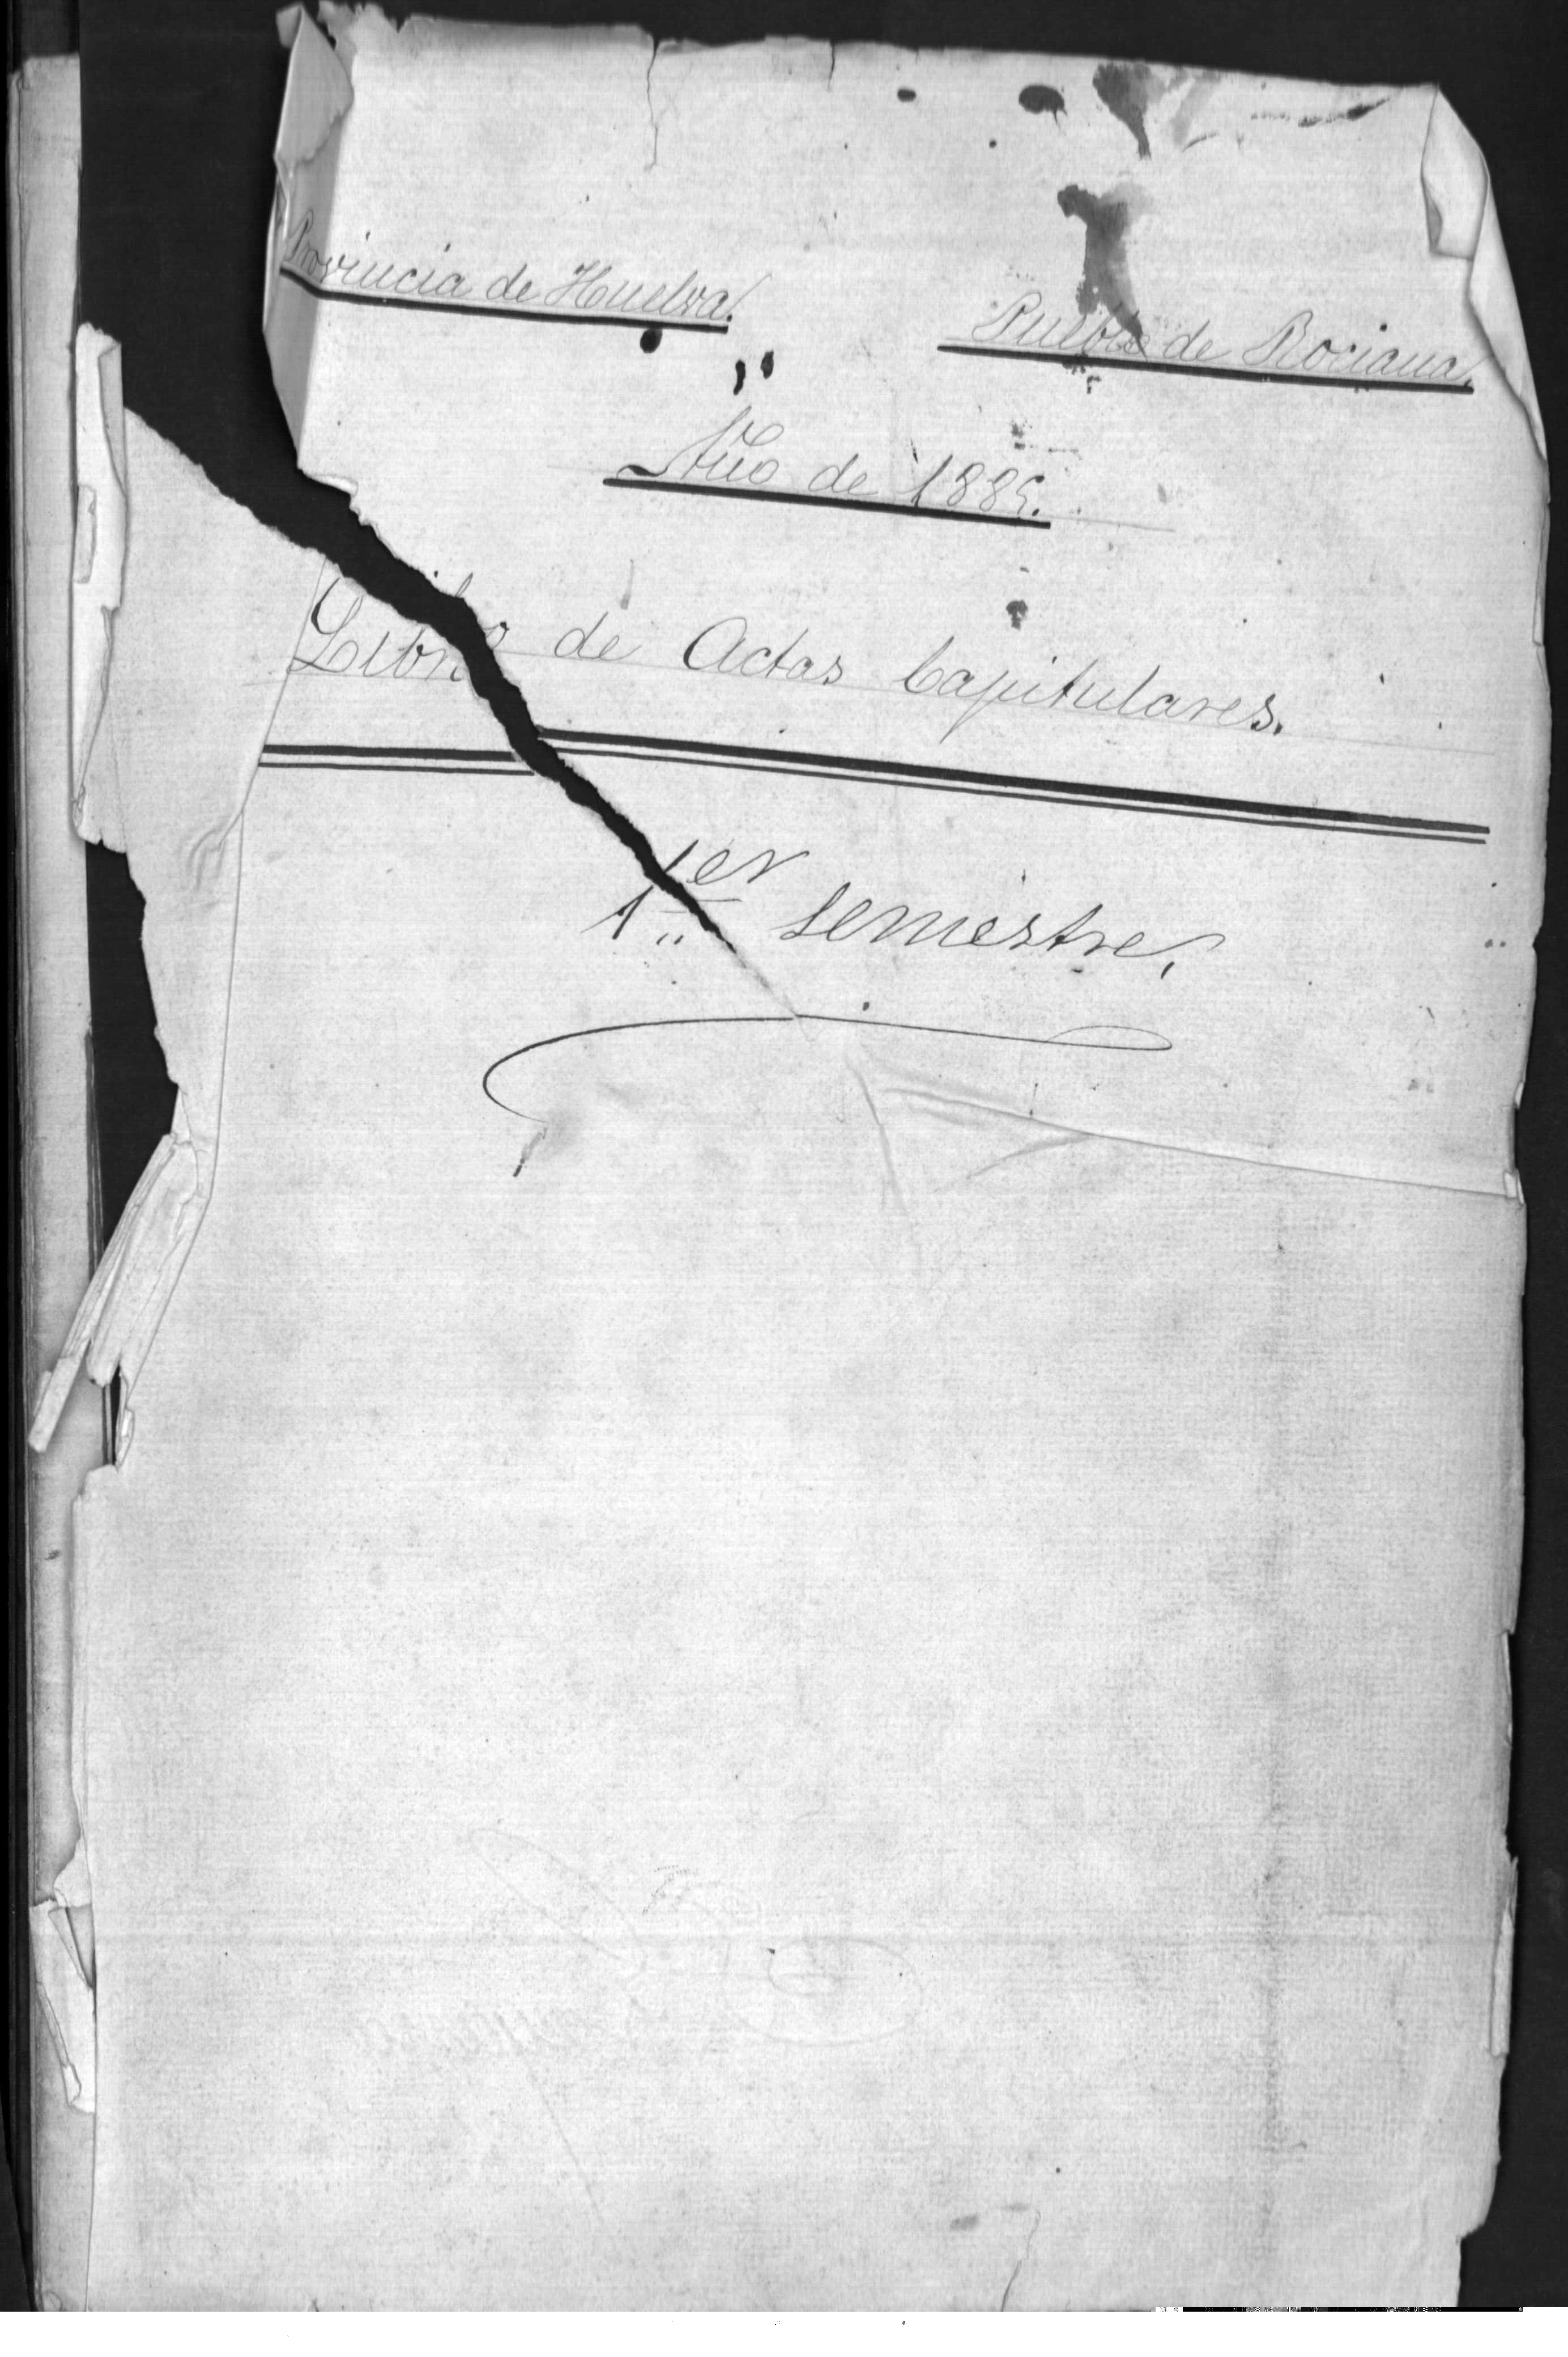 Provincia de Huelva.
Pueblo de Rociana.
Año de 1885.
Libro de Actas Capitulares.
1er semestre.